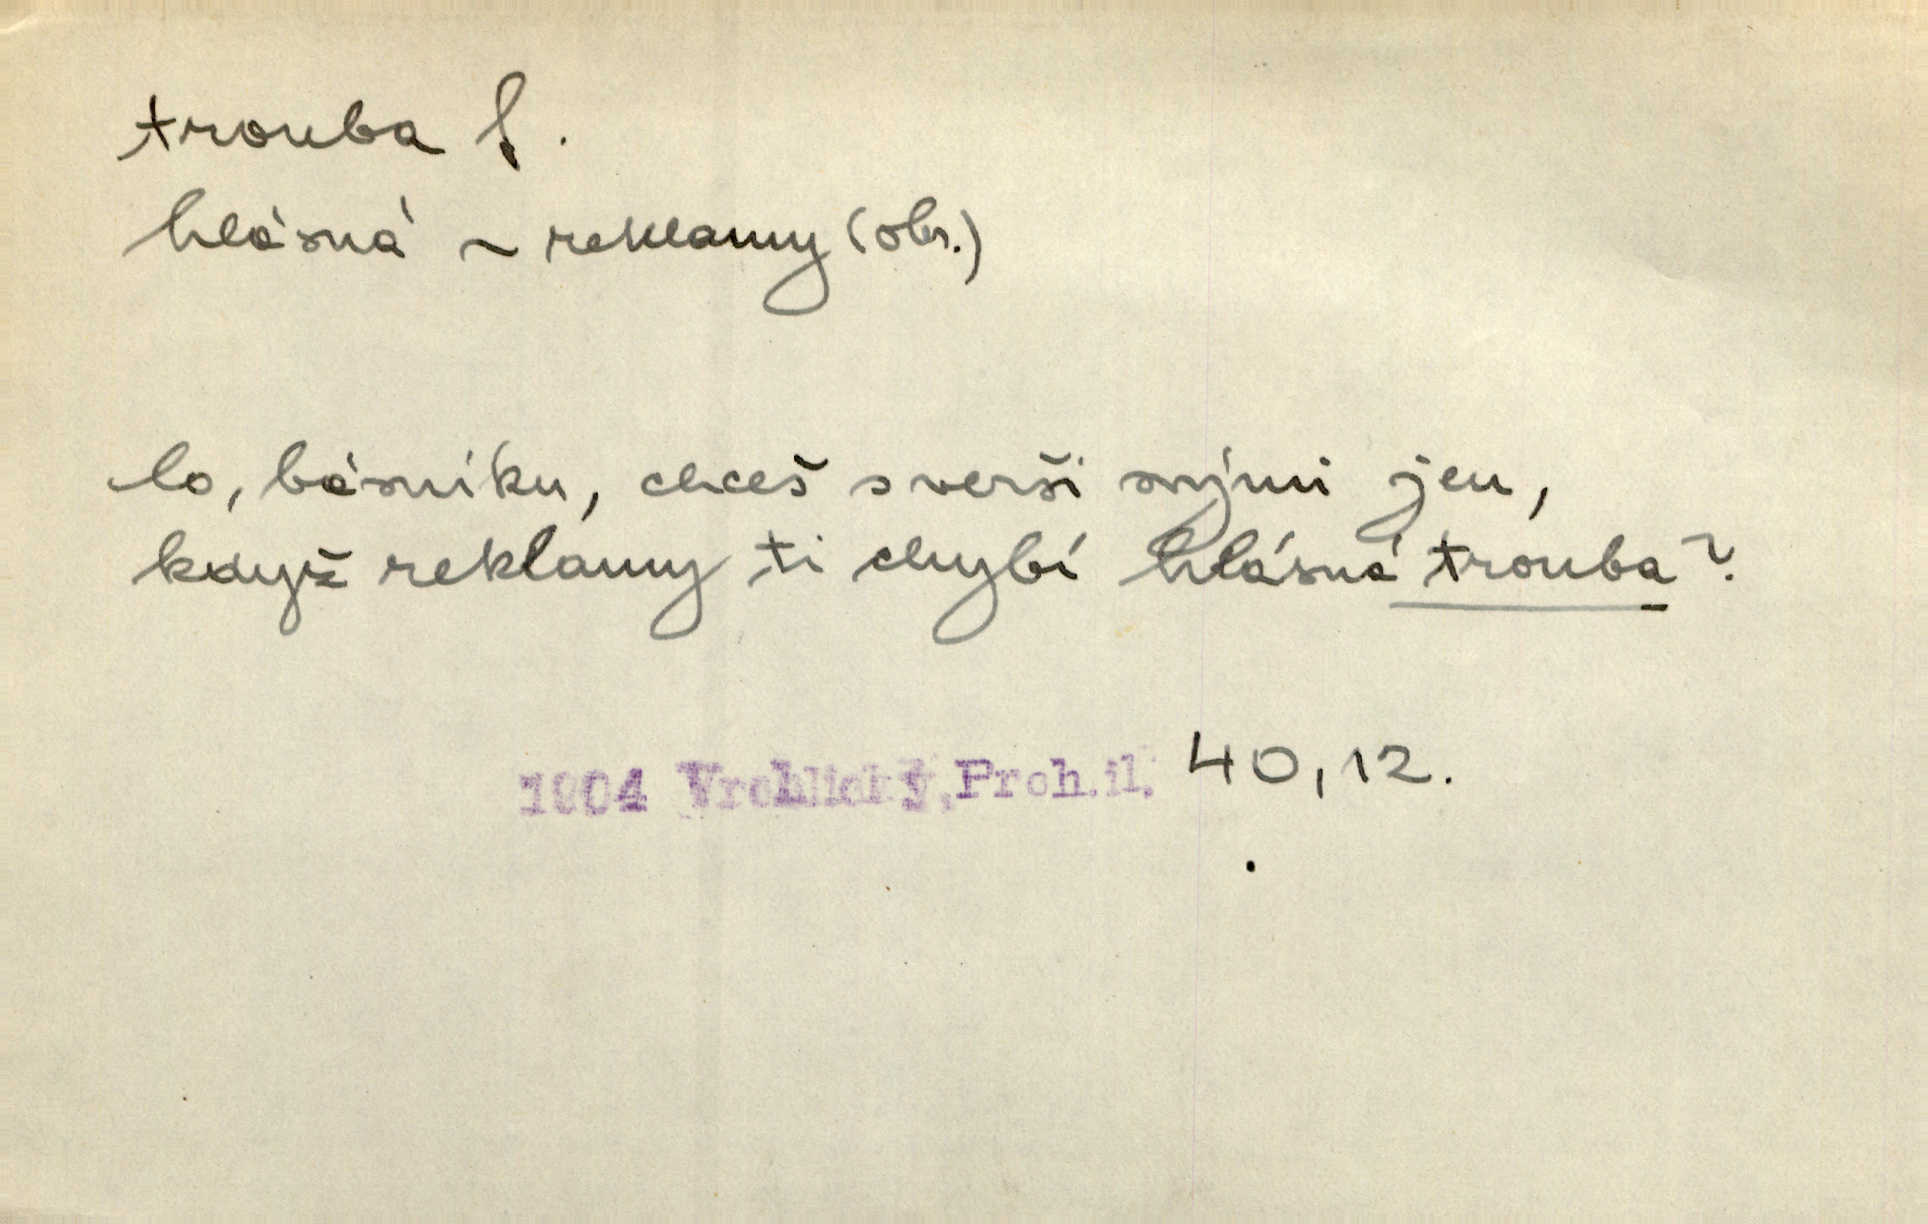 trouba f.
hlásná ~ reklamy (obr.)
Co, básníku, chceš s verši svými jen,
když reklamy ti chybí hlásná trouba?
1904 Vrchlický, Proh.il. 40,12.